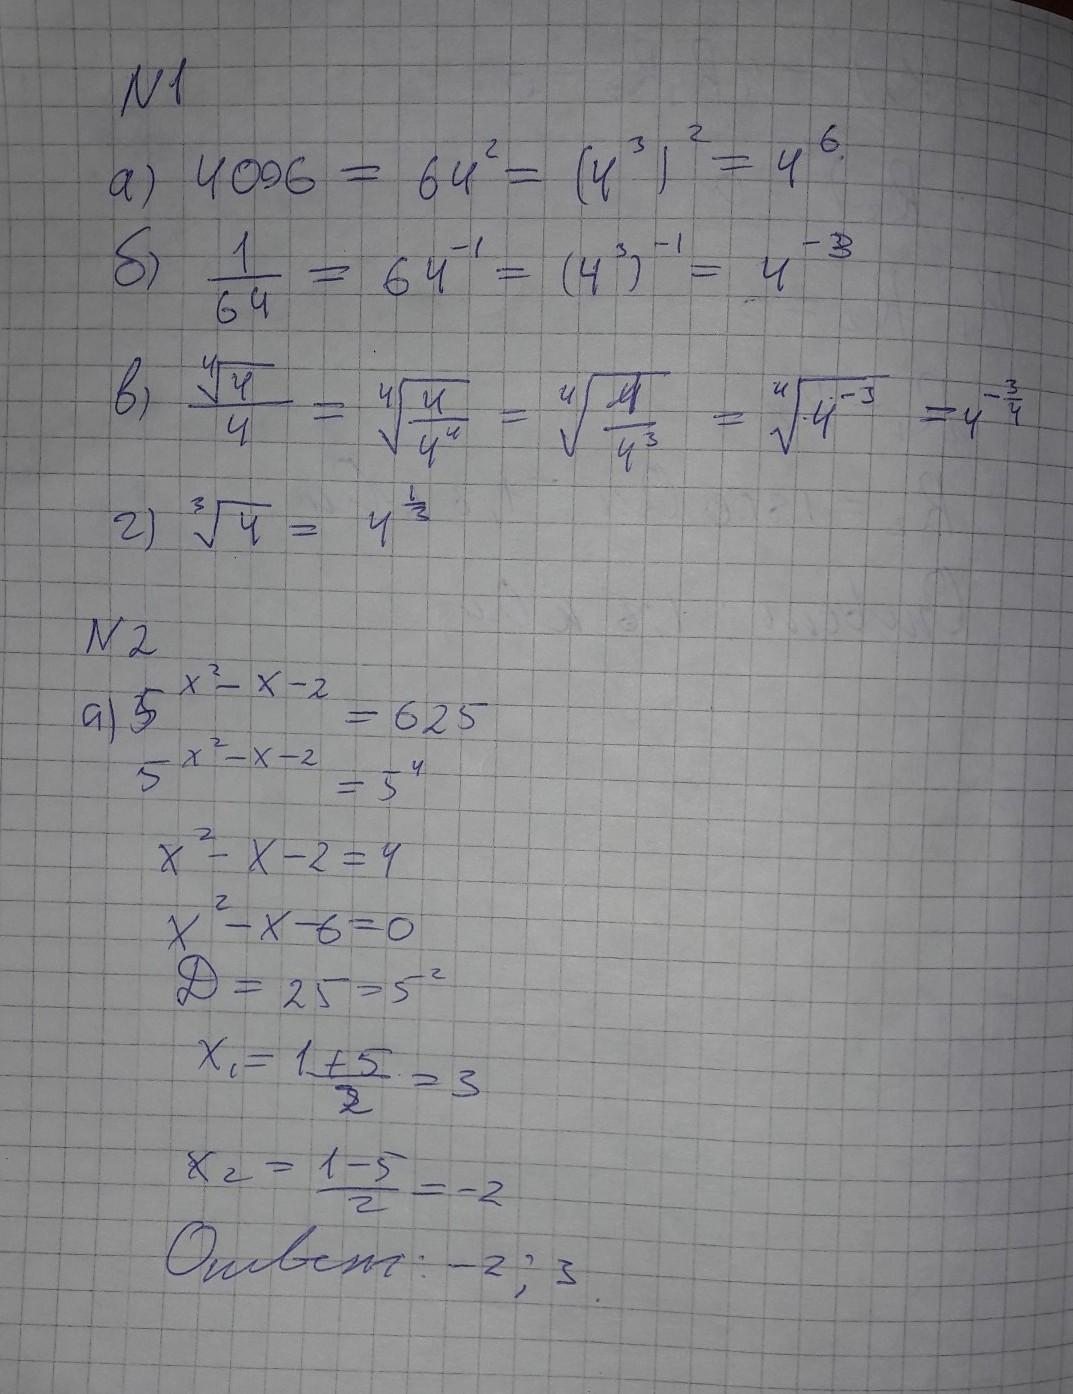 N1
а) 4096 = 64² = (4³)² = 4⁶
б) 1/64 = 64⁻¹ = (4³)⁻¹ = 4⁻³
в) ⁴√4/4 = ⁴√(4/4⁴) = ⁴√(1/4³) = ⁴√(4⁻³) = 4^(-3/4)
г) ³√4 = 4^(1/3)
N2
а) 5^(x²-x-2) = 625
5^(x²-x-2) = 5⁴
x² - x - 2 = 4
x² - x - 6 = 0
D = 25 = 5²
x₁ = (1+5)/2 = 3
x₂ = (1-5)/2 = -2
Ответ: -2; 3.